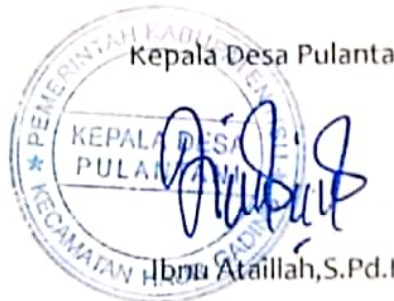 Kepala Desa Pulanta
PEMERINTAH KABUPATEN
KEPALA DESA
KECAMATAN
Ibnu Ataillah,S.Pd.